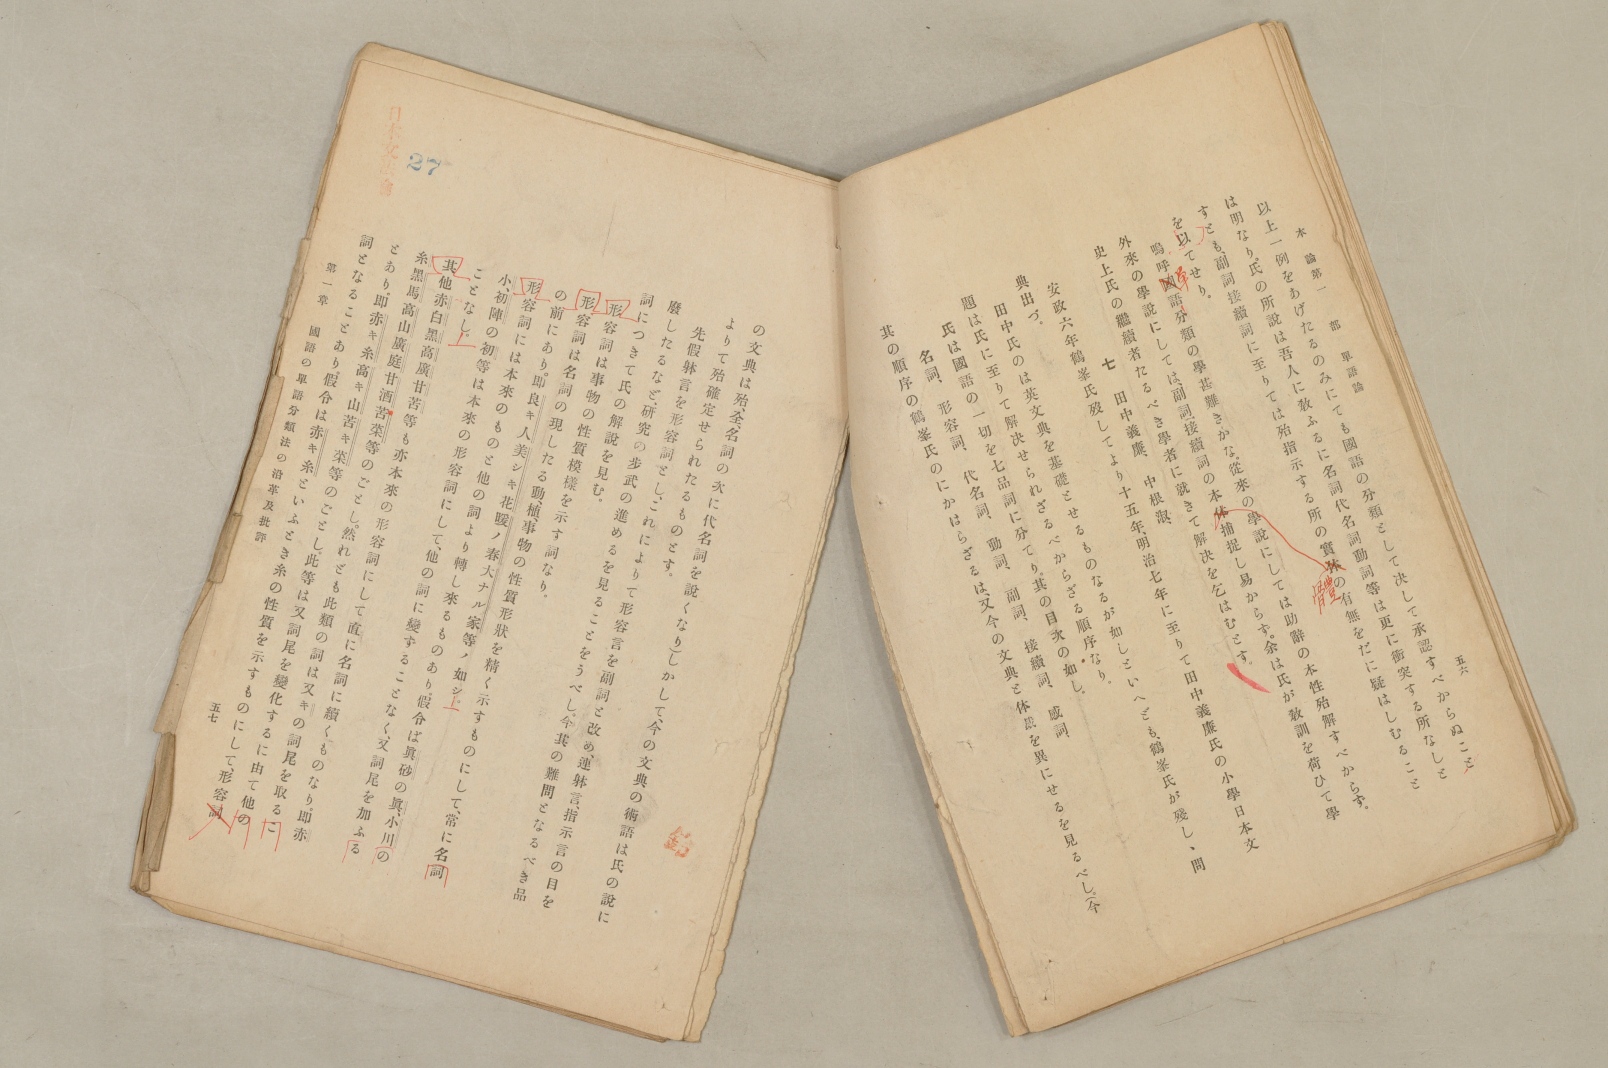 本論第一部 單語論
五六
以上一例をあげたるのみにても國語の分類として決して承認すべからぬこと
は明なり。氏の所説は吾人に敎ふるに名詞代名詞動詞等は更に衝突する所なしと
すとも、副詞接續詞に至りては殆指示する所の實體の有無をだに疑はしむること
を以てせり。
嗚呼國語分類の學甚難きかな。從來の學説にしては助辭の本性殆解すべからず。
外來の學説にしては副詞接續詞の本体捕捉し易からず。余は氏が敎訓を荷ひて學
史上氏の繼續者たるべき學者に就きて解決を乞はむとす。
七 田中義廉、中根淑、
安政六年鶴峯氏歿してより十五年、明治七年に至りて田中義廉氏の小學日本文
典出づ。
田中氏のは英文典を基礎とせるものなるが如しといへども、鶴峯氏が殘し丶問
題は氏に至りて解決せられざるべからざる順序なり。
氏は國語の一切を七品詞に分てり。其の目次の如し。
名詞、形容詞、代名詞、動詞、副詞、接續詞、感詞
其の順序の鶴峯氏のにかはらざるは又今の文典と体裁を異にせるを見るべし。(今
の文典は殆、全名詞の次に代名詞を說くなり)しかして、今の文典の術語は氏の說に
よりて殆確定せられたるものとす。
先假躰言を形容詞とし、これによりて形容言を副詞と改め連躰言、指示言の目を
廢したるなど、研究の步武の進めるを見ることをうべし。今其の難問となるべき品
詞につきて氏の解說を見む。
形容詞は事物の性質模樣を示す詞なり。
形容詞は名詞の現したる動、植、事物の性質形狀を精く示すものにして、常に名詞
の前にあり。即良キ人美シキ花暖ノ春大ナル家等ノ如シ。
形容詞には本來のものと他の詞より轉し來るものあり、假令ば眞砂の眞、小川の
小、初陣の初等は本來の形容詞にして、他の詞に變ずることなく、又詞尾を加ふる
ことなし。
其他赤白黑高廣甘苦等も亦本來の形容詞にして直に名詞に續くものなり。即赤
糸黑馬高山廣庭甘酒苦菜等のごとし。然れども此類の詞は又キの詞尾を取るこ
とあり、即赤キ糸高キ山苦キ菜等のごとし此等は又詞尾を變化するに由て他の
詞となることあり、假令は赤キ糸といふとき糸の性質を示すものにして、形容詞
第一章 國語の單語分類法の沿革及批評
五七
27
體